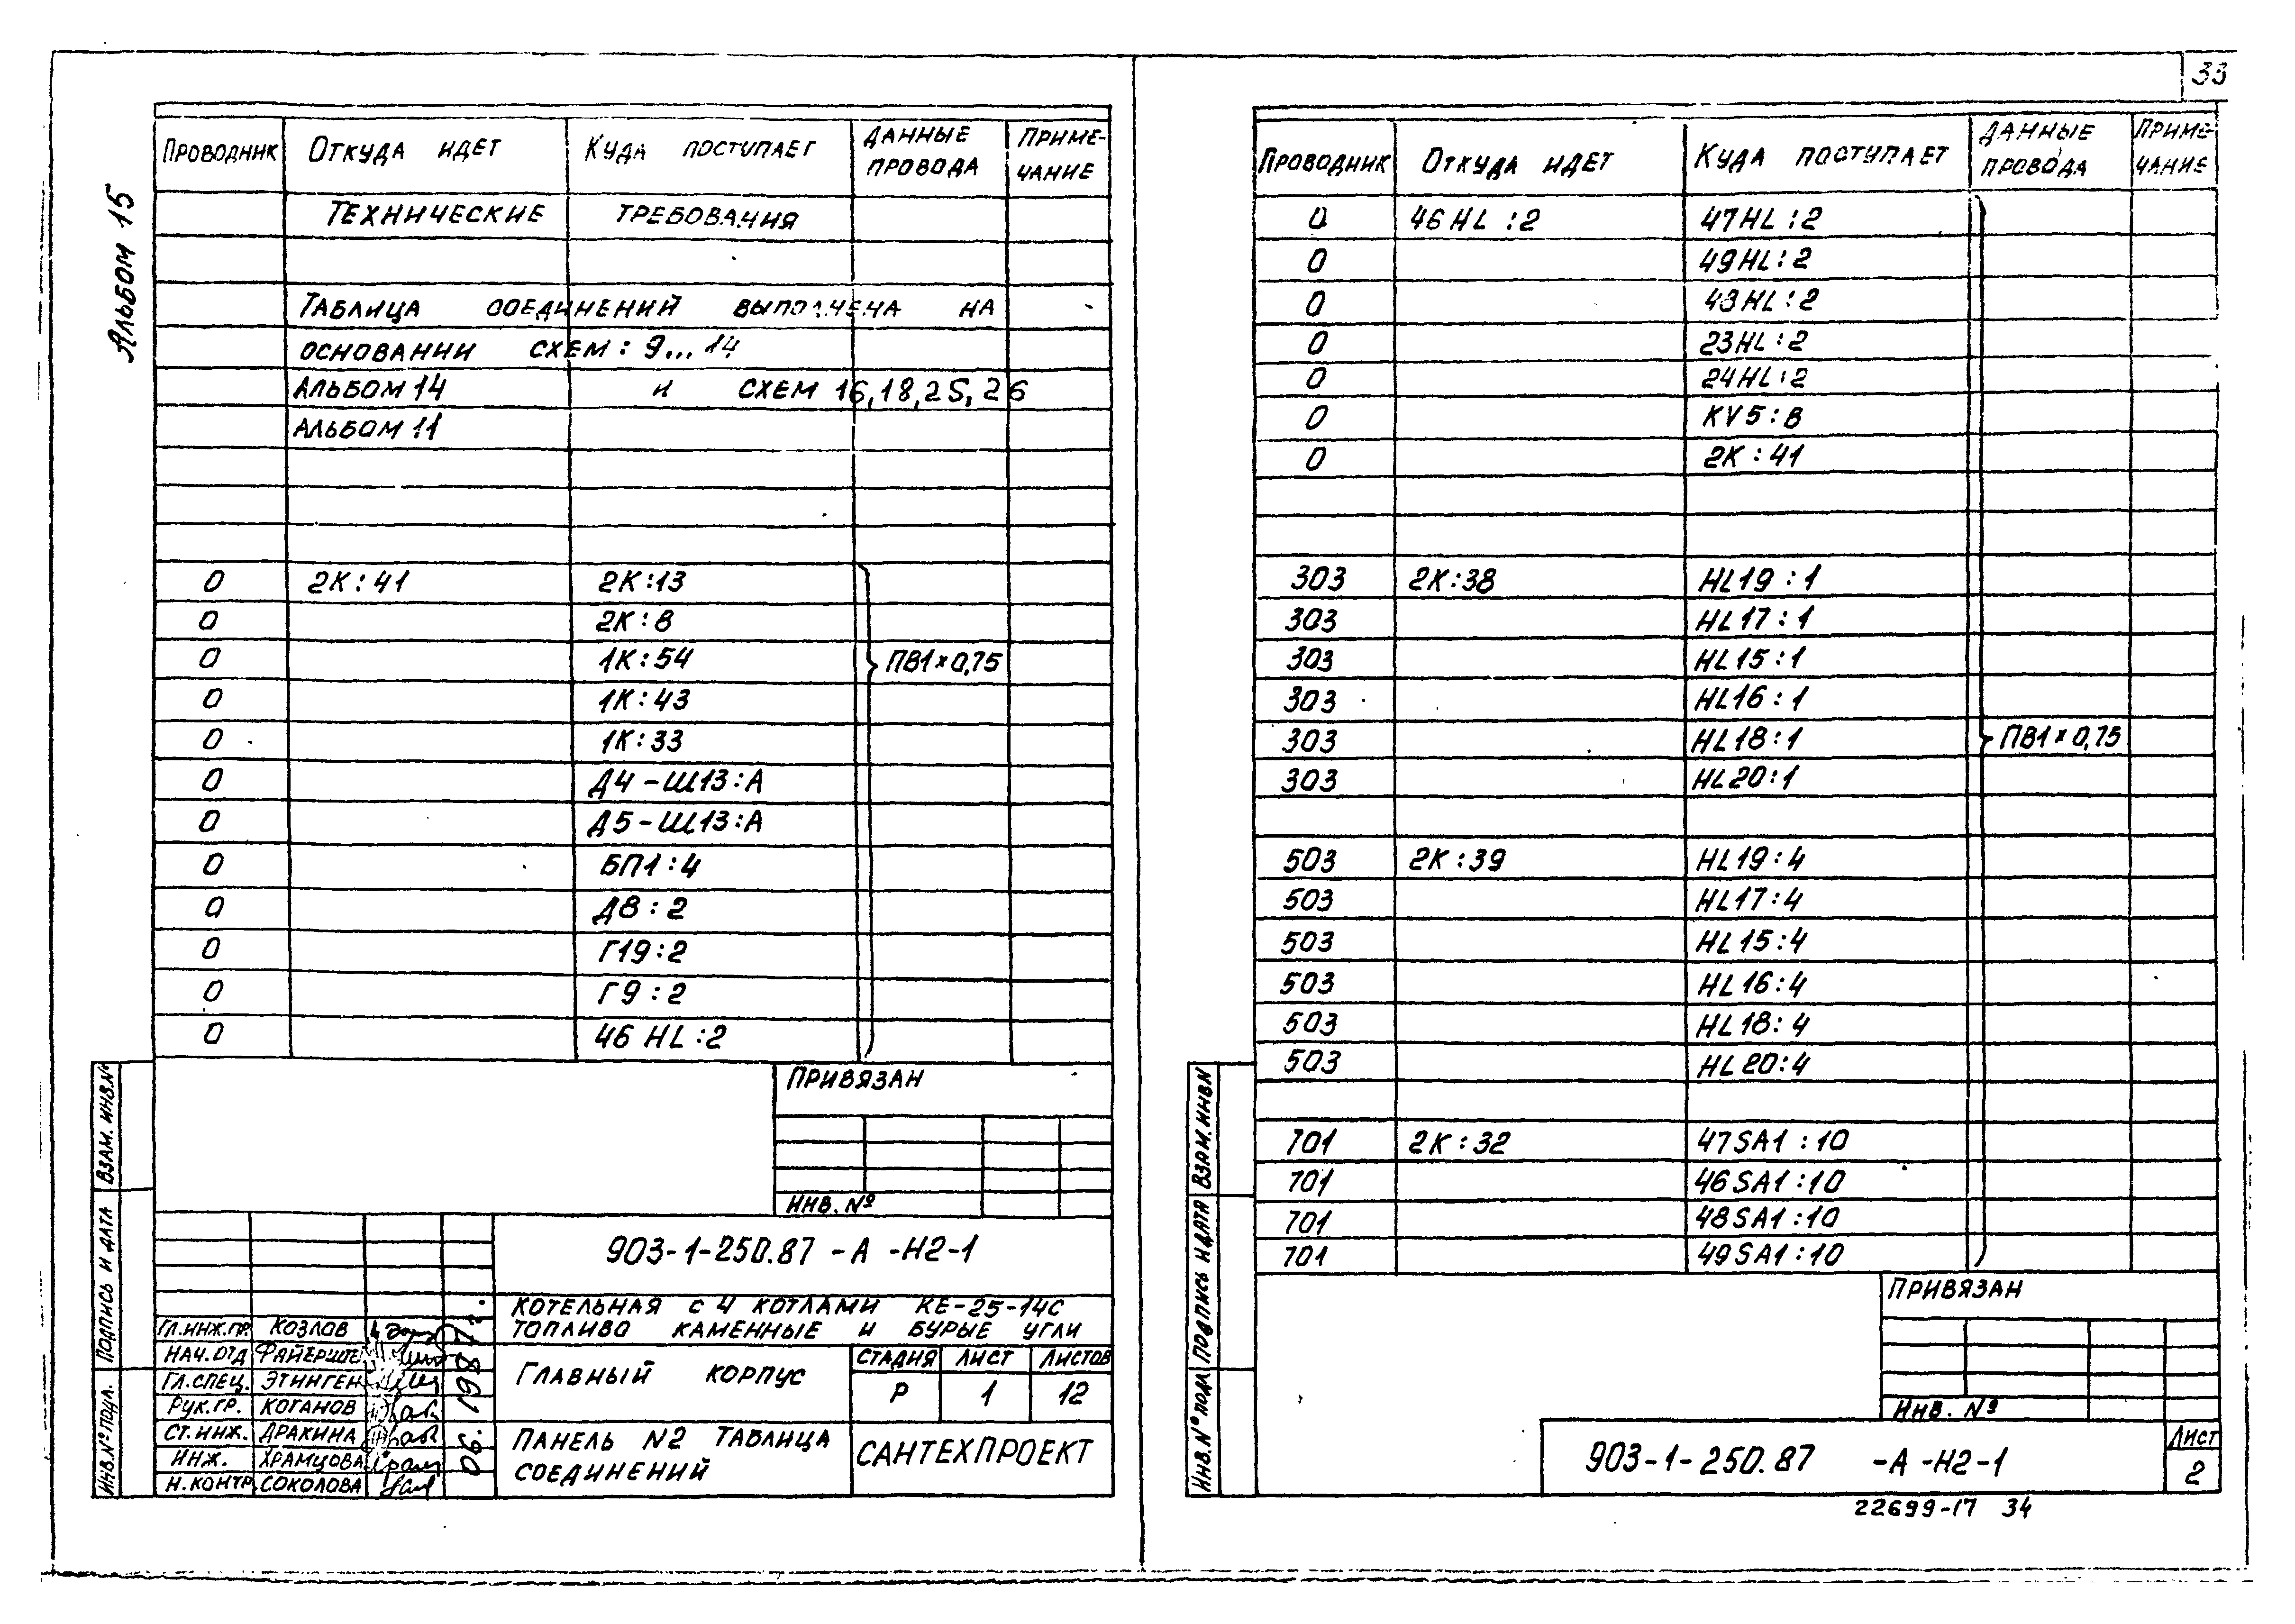 33
Альбом 15
Проводник Откуда идет Куда поступает Данные провода Приме-чание
Технические требования
Таблица соединений выполнена на
основании схем: 9...14
Альбом 14 и схем 16,18,25,26
Альбом 11
0 2К:41 2К:13
0 2К:8
0 1К:54 ПВ1×0,75
0 1К:43
0 1К:33
0 Д4-Ш13:А
0 Д5-Ш13:А
0 БП1:4
0 Д8:2
0 Г19:2
0 Г9:2
0 46HL:2
Привязан
Инв. №
903-1-250.87 -А -Н2-1
Котельная с 4 котлами КЕ-25-14С
Топливо каменные и бурые угли
Гл.инж.пр. Козлов
Нач.отд Файерште
Гл.спец. Этинген
Рук.гр. Коганов
Ст.инж. Дракина
Инж. Храмцова
Н.контр. Соколова
06.1987г.
Главный корпус
Стадия Лист Листов
Р 1 12
Панель N2 Таблица
соединений
САНТЕХПРОЕКТ
Инв.№ подл. Подпись и дата Взам.инв.№
Проводник Откуда идет Куда поступает Данные провода Приме-чание
0 46HL:2 47HL:2
0 49HL:2
0 48HL:2
0 23HL:2
0 24HL:2
0 KV5:В
0 2К:41
303 2К:38 HL19:1
303 HL17:1
303 HL15:1
303 HL16:1
303 HL18:1 ПВ1×0,75
303 HL20:1
503 2К:39 HL19:4
503 HL17:4
503 HL15:4
503 HL16:4
503 HL18:4
503 HL20:4
701 2К:32 47SA1:10
701 46SA1:10
701 48SA1:10
701 49SA1:10
Привязан
Инв. №
903-1-250.87 -А -Н2-1
Лист
2
Инв.№ подл Подпись и дата Взам.инв.N
22699-17 34